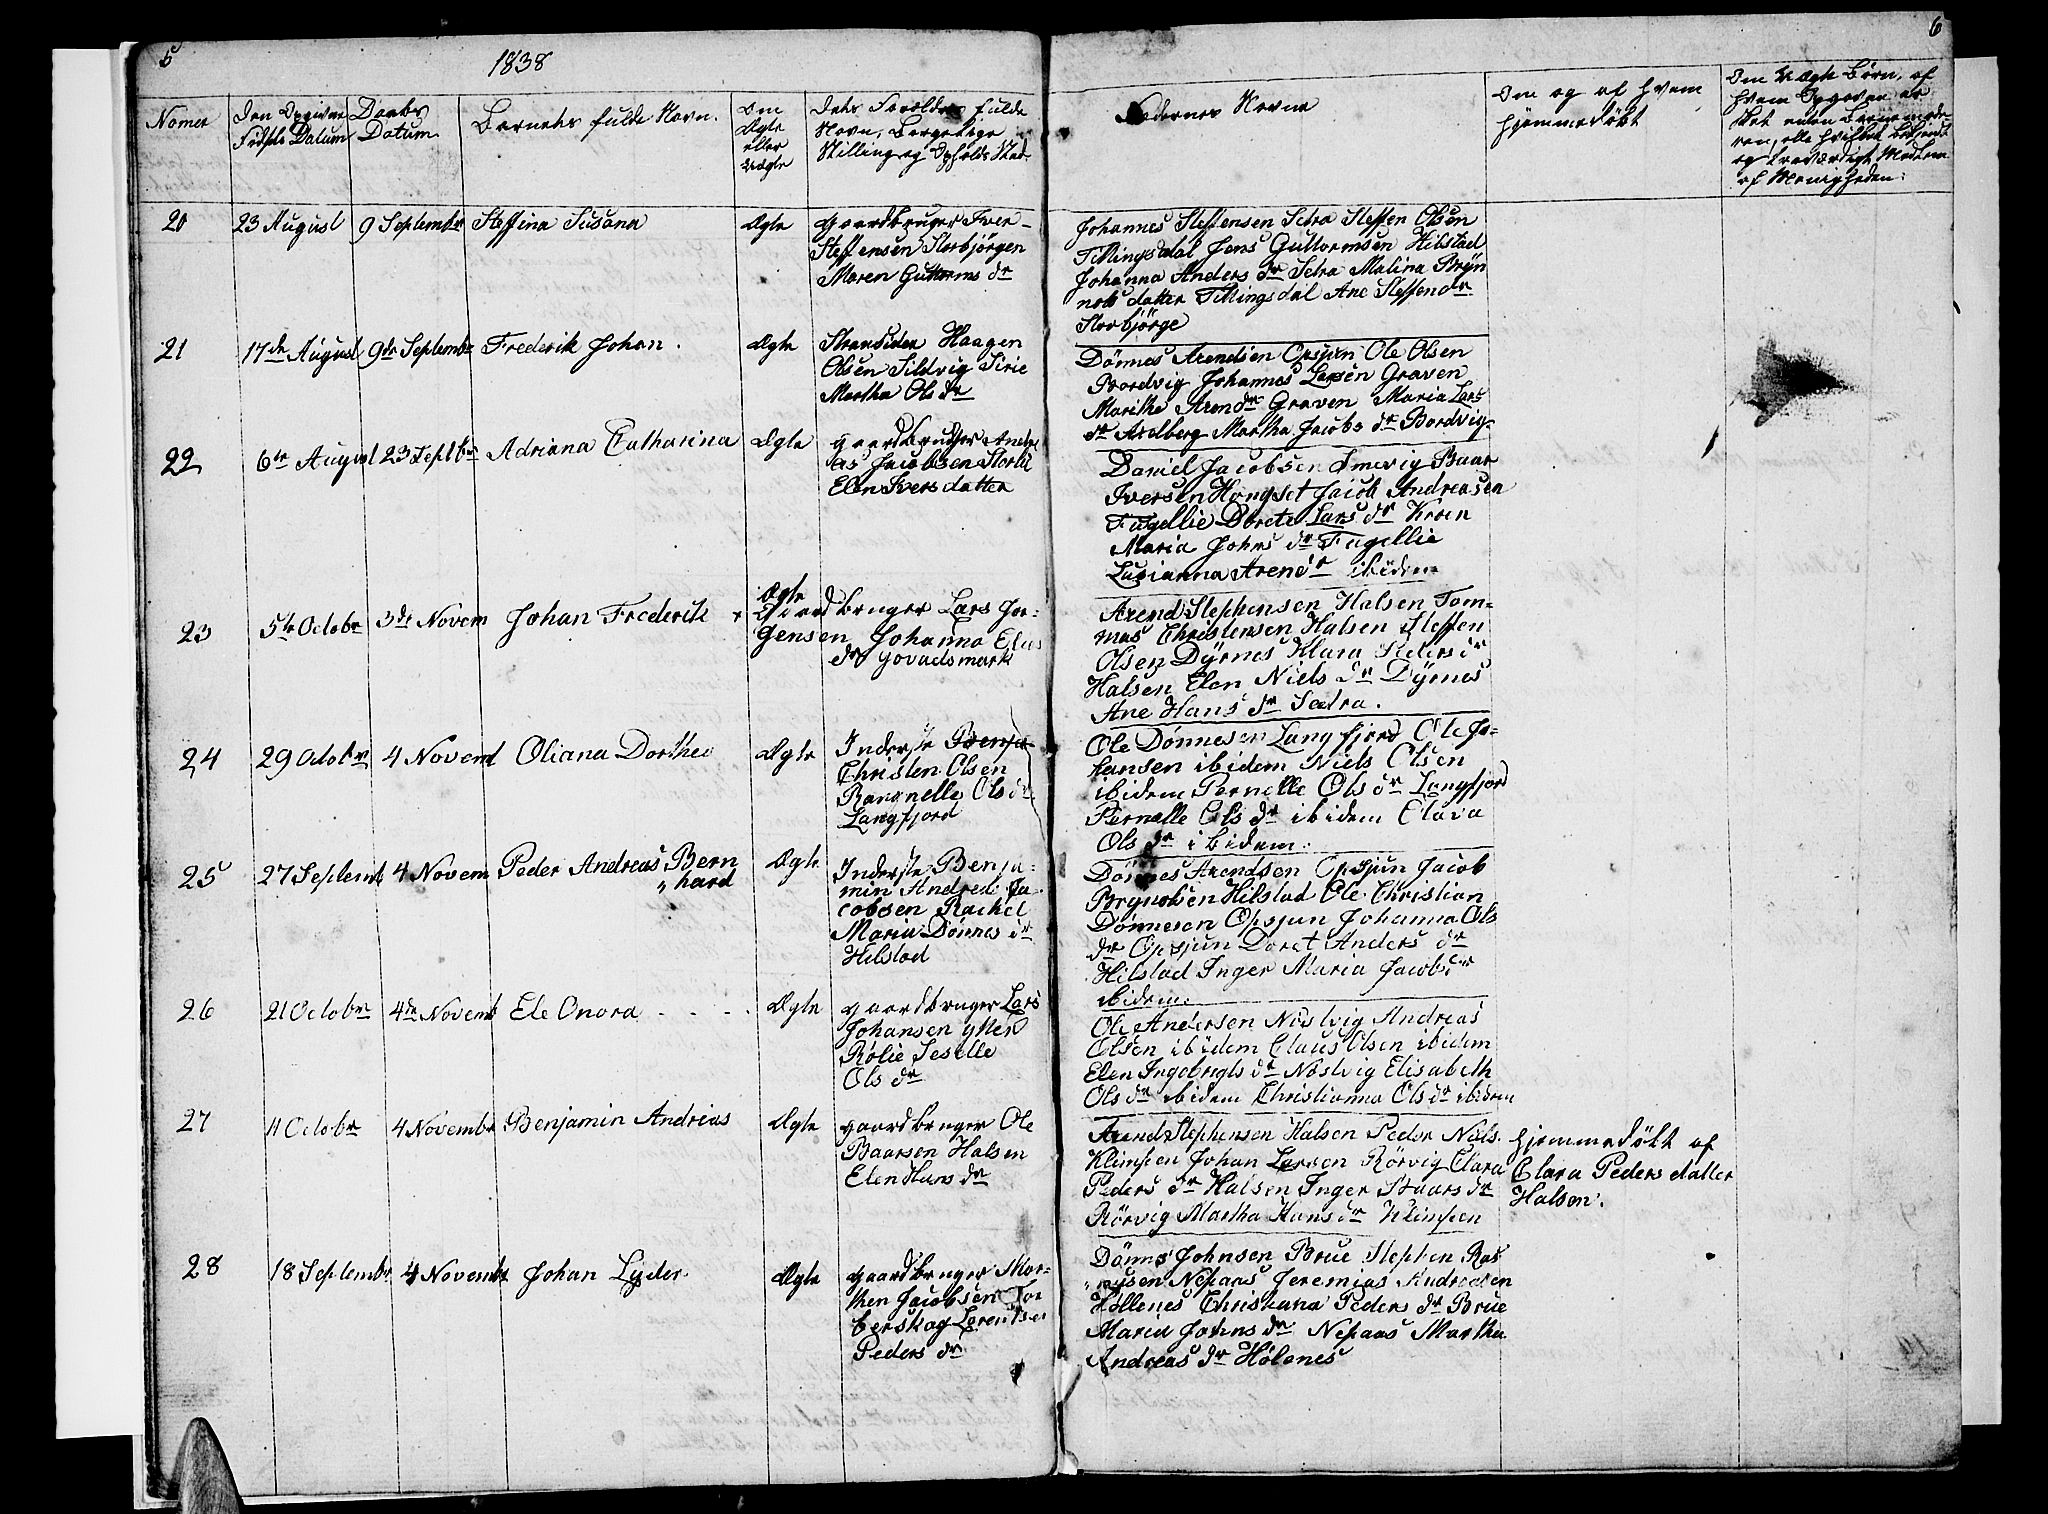 5
1838
6
Nomer
Den Opgivne
Fødsels Datum
Daabs
Datum
Barnets fulde Navn.
Om
Ægte
eller
Uægte
Dets Forældre fulde
Navn, Borgerlige
Stilling og Opholds Sted
Faddernes Navne
Om og af hvem
hjemmedøbt
Om Uægte Børn, af
hvem Opgaven er
sket enten Barnemode-
ren, elle hvilket bekjendt
og troværdigt Medlem
af Menigheden.
20
23 August
9 Septembr
Steffina Susana
Ægte
gaardbruger Iver
Steffensen Storbjörgen
Maren Guttorms dr
Johannes Steffensen Setra Steffen Olsen
Tillingsdal Jens Guttormsen Hilstad
Johanna Anders dr Setra Malina Bryn
nols datter Tillingsdal Ane Steffen dr
Storbjörge
21
17de August
9de Septembr
Frederik Johan.
Ægte
Strandsiden Haagen
Olsen Sildvig Sirie
Martha Ols dr
Dønnes Arendsen Opsjøn Ole Olsen
Bordvig Johannes Larsen Graven
Marithe Aren dr Graven Maria Lars
dr Ardberg Martha Jacobs dr Bordvig
22
6te August
23 Septbr
Adriana Catharina
Ægte
gaardbruger Andre
as Jacobsen Storlie
Elen Ivers datter
Daniel Jacobsen Smevig Baar
Iversen Hongset Jacob Andreasen
Fugellie Dorete Lars dr Kroen
Maria Johns dr Fugellie
Lucianna Aren dr ibidem
23
5te Octobr
3de Novem
Johan Frederik
Ægte
Gaardbruger Lars Jör-
gensen Johanna Elias
dr Govadsmark
Arend Stephensen Halsen Tom-
mas Christensen Halsen Steffen
Olsen Dyrnes Klara Peders dr
Halsen Elen Niels dr Dyrnes
Ane Hans dr Sætra.
24
29 Octobr
4 Novemb
Oliana Dorthea
Ægte
Inderste Benja-
Christen Olsen
Rangnelle Ols dr
Langfjord
Ole Dønnesen Langfjord Ole Jo-
hansen ibidem Niels Olsen
ibidem Pernelle Ols dr Langfjord
Pernelle Ols dr ibidem Clara
Ols dr ibidem.
25
27 Septemb
4 Novem
Peder Andreas Bern
" hard
Ægte
Inderste Benja-
min Andreas Ja-
cobsen Rachel
Maria Dønnes dr
Hilstad
Dønnes Arendsen Opsjun Jacob
Brynolsen Hilstad Ole Christian
Dønnesen Opsjun Johanna Ols
dr Opsjun Doret Anders dr
Hilstad Inger Maria Jacobs dr
ibidem.
26
21 Octobr
4de Novemb
Ele Onora
Ægte
gaardbruger Lars
Johansen ytter
Rölie Seselle
Ols dr
Ole Andersen Nöstvig Andreas
Olsen ibidem Claus Olsen ibidem
Elen Ingebregts dr Nöstvig Elisabeth
Ols dr ibidem Christianna Ols dr ibidem
27
11 Octobr
4 Novembr
Benjamin Andrias
Ægte
gaardbruger Ole
Baarsen Halsen
Elen Hans dr
Arend Stephensen Halsen Peder Niels.
Klimpen Johan Larsen Rörvig Clara
Peders dr Halsen Inger Baars dr
Rörvig Martha Hans dr Klimpen
hjemmedöbt af
Clara Peders datter
Halsen.
28
18 Septembr
4 Novembr
Johan Lyder.
Ægte
gaardbruger Mor-
then Jacobsen Tor
berskog Lorentsen
Peders dr
Dönnes Johnsen Brue Stephen Ras
" mysen Nepaas Jeremias Andreasen
Höllenes Christiana Peders dr Brue
Maria Johns dr Nepaas Martha
Andreas dr Hölenes